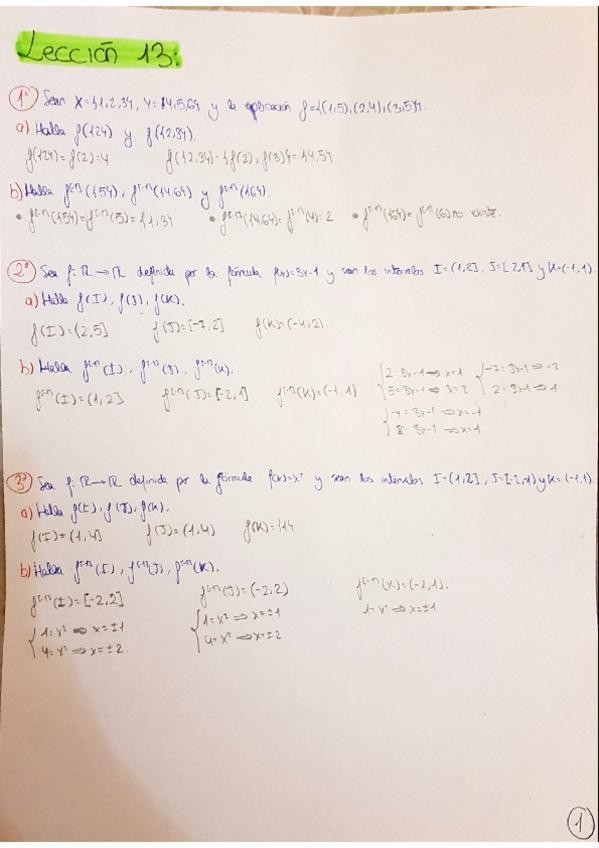 Lección 13:
1º Sean X={1,2,3}, Y={4,5,6} y la aplicación f={(1,5),(2,4),(3,5)}.
a) Halla f({2}) y f({2,3}).
f({2})=f(2)=4 f({2,3})={f(2), f(3)}={4,5}
b) Halla f⁽⁻¹⁾({5}), f⁽⁻¹⁾({4,6}) y f⁽⁻¹⁾({6}).
• f⁽⁻¹⁾({5})=f⁽⁻¹⁾(5)={1,3} • f⁽⁻¹⁾({4,6})=f⁽⁻¹⁾(4)=2 • f⁽⁻¹⁾({6})=f⁽⁻¹⁾(6) no existe.
2º Sea f: ℝ→ℝ definida por la fórmula f(x)=3x-1 y sean los intervalos I=(1,2], J=[-2,1] y K=(-1,1).
a) Halla f(I), f(J), f(K).
f(I)=(2,5] f(J)=[-7,2] f(K)=(-4,2).
b) Halla f⁽⁻¹⁾(I), f⁽⁻¹⁾(J), f⁽⁻¹⁾(K).
f⁽⁻¹⁾(I)=(1,2] f⁽⁻¹⁾(J)=[-2,1] f⁽⁻¹⁾(K)=(-1,1)
{2=3x-1⇒x=1 {-7=3x-1⇒-2
5=3x-1⇒x=2 2=3x-1⇒1
{-4=3x-1⇒x=-1
2=3x-1⇒x=1
3º Sea f: ℝ→ℝ definida por la fórmula f(x)=x² y sean los intervalos I=(1,2], J=[-2,1) y K=(-1,1).
a) Halla f(I), f(J), f(K).
f(I)=(1,4] f(J)=(1,4) f(K)={1}
b) Halla f⁽⁻¹⁾(I), f⁽⁻¹⁾(J), f⁽⁻¹⁾(K).
f⁽⁻¹⁾(I)=[-2,2] f⁽⁻¹⁾(J)=(-2,2) f⁽⁻¹⁾(K)=(-1,1).
{1=x²⇒x=±1 {1=x²⇒x=±1 1=x²⇒x=±1
4=x²⇒x=±2. 4=x²⇒x=±2
1